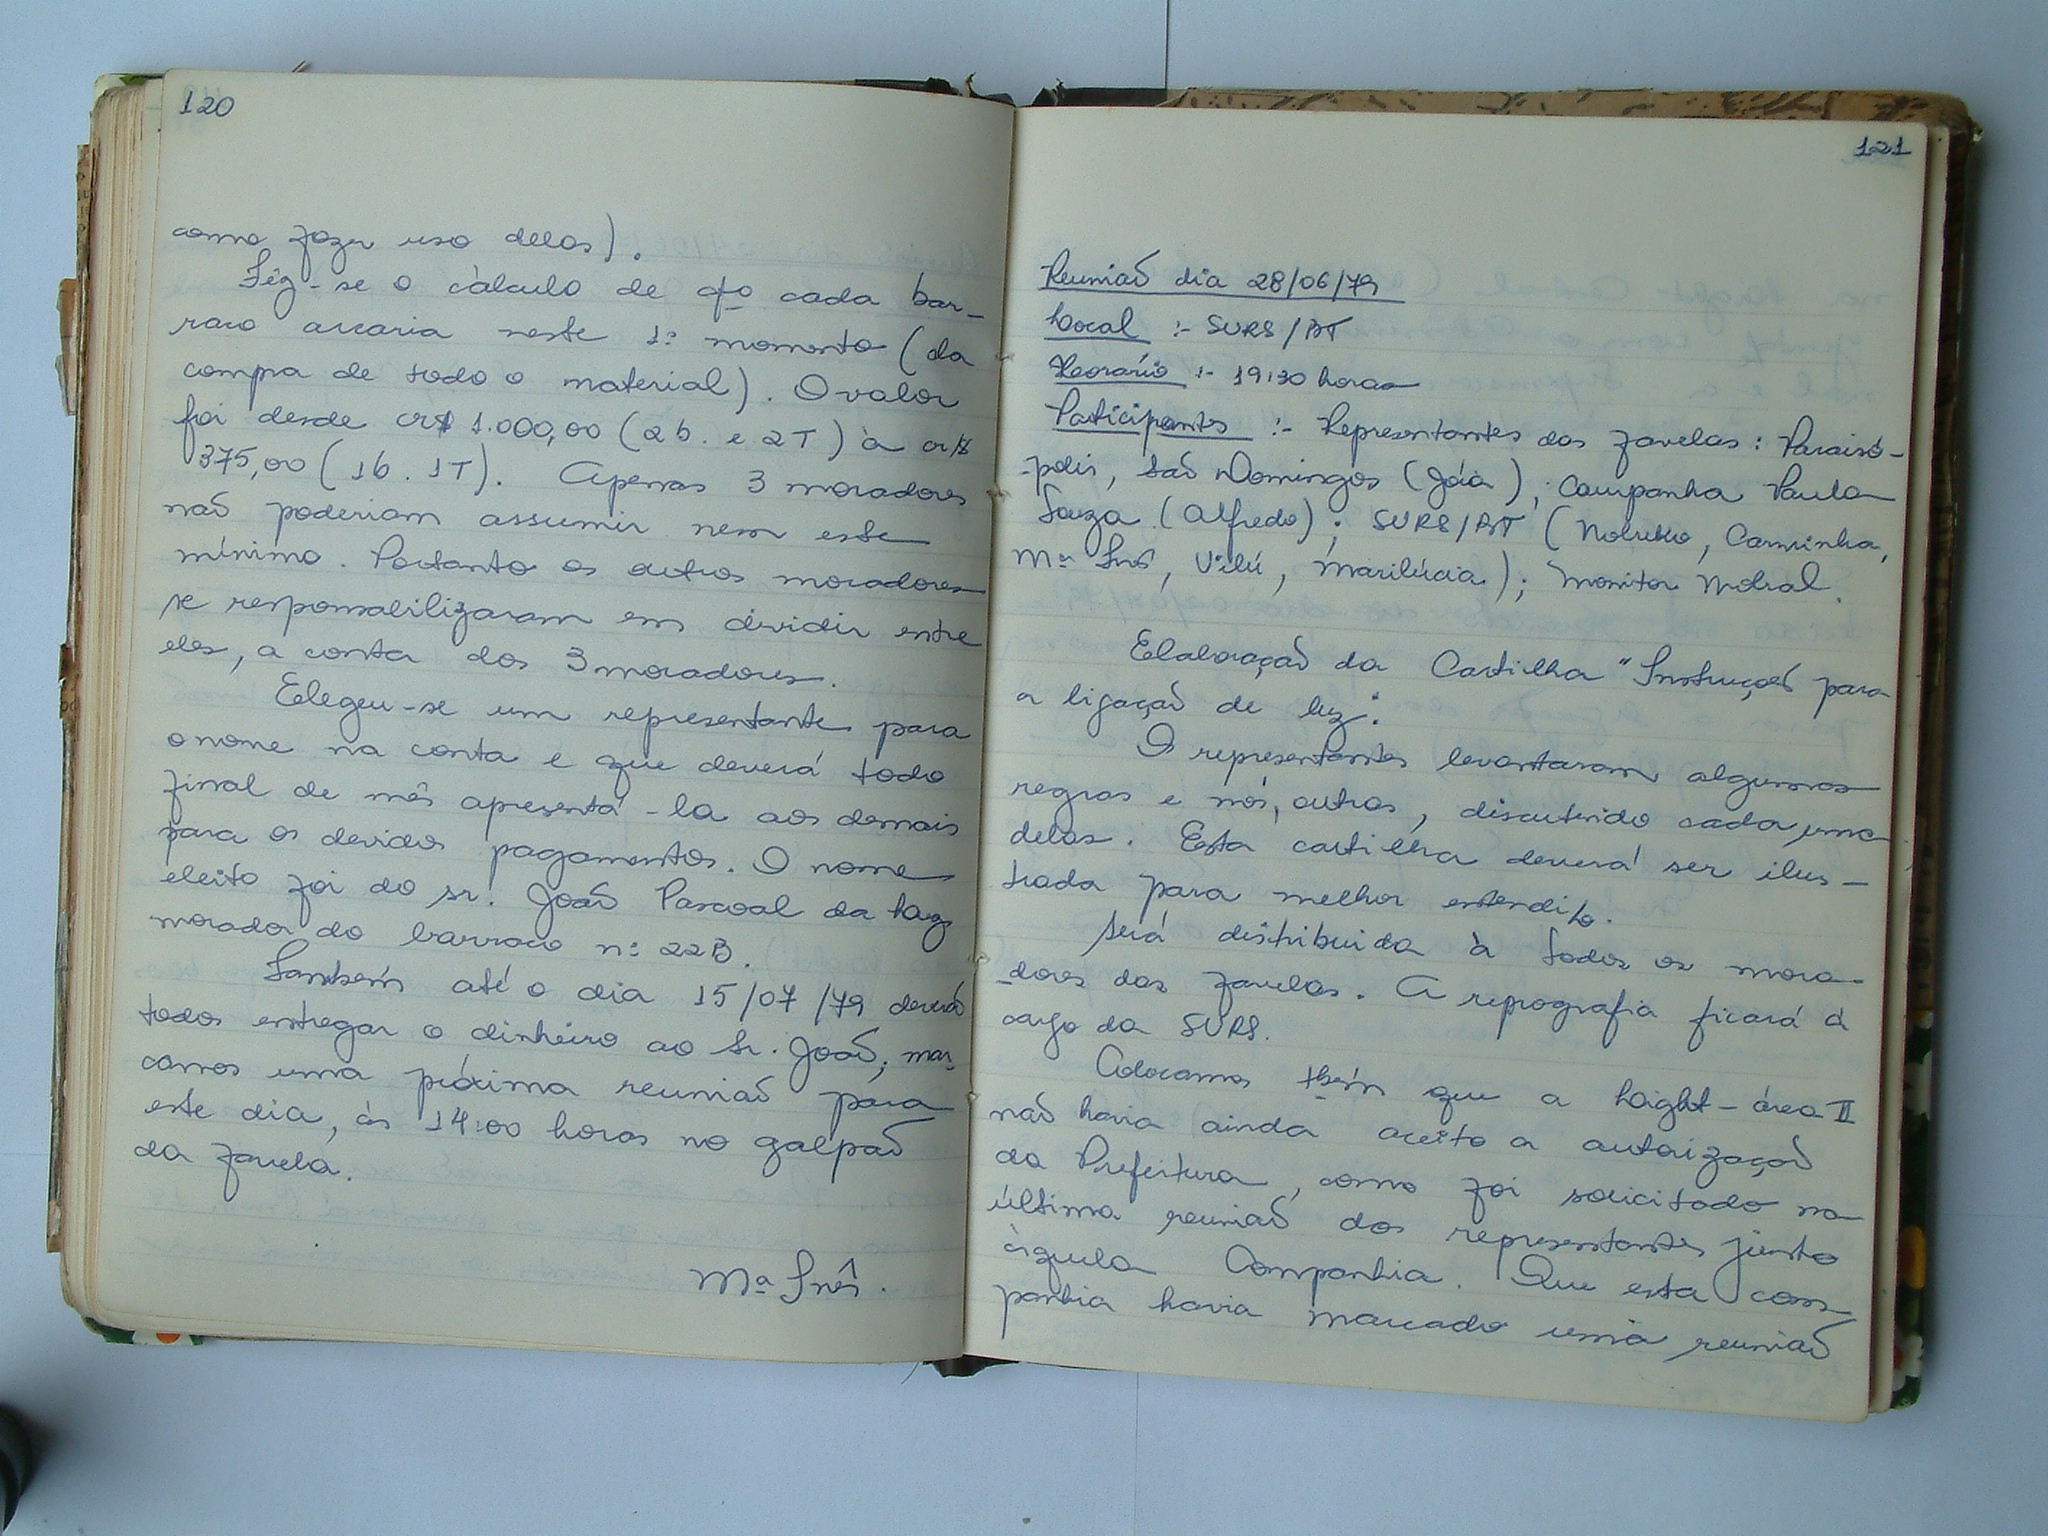 120
como fazer uso delas).
Fêz-se o cálculo de qto cada bar-
raco arcaria neste 1º momento (da
compra de todo o material). O valor
foi desde cr$ 1.000,00 (2b. e 2T) à cr$
375,00 (1b. 1T). Apenas 3 moradores
não poderiam assumir nem este
mínimo. Portanto os outros moradores
se responsabilizaram em dividir entre
eles, a conta dos 3 moradores.
Elegeu-se um representante para
o nome na conta e que deverá todo
final de mês apresentá-la aos demais
para os devidos pagamentos. O nome
eleito foi do sr. João Pascoal da Luz
morador do barraco nº 22B.
Também até o dia 15/07/79 deverão
todos entregar o dinheiro ao Sr. João; mar-
camos uma próxima reunião para
este dia, às 14:00 horas no galpão
da favela.
Mª Inês.
121
Reunião dia 28/06/79
Local :- SURS/BT
Horário :- 19:30 horas
Participantes :- Representantes das favelas: Paraisó-
polis, São Domingos (Jóia); Campanha Paula
Souza (Alfredo); SURS/BT (Carminha,
Mª Inês, Vilú, Marilúcia); Monitor Mobral.
Elaboração da Cartilha "Instruções para
a ligação de luz".
O representantes levantaram algumas
regras e nós, outras, discutindo cada uma
delas. Esta cartilha deverá ser ilus-
trada para melhor entendito.
Será distribuida à todos os mora-
dores das favelas. A reprografia ficará à
cargo da SURS.
Colocamos tbém que a Light-área II
não havia ainda aceito a autorização
da Prefeitura, como foi solicitado na
última reunião dos representantes junto
àquela Companhia. Que esta com
panhia havia marcado uma reunião